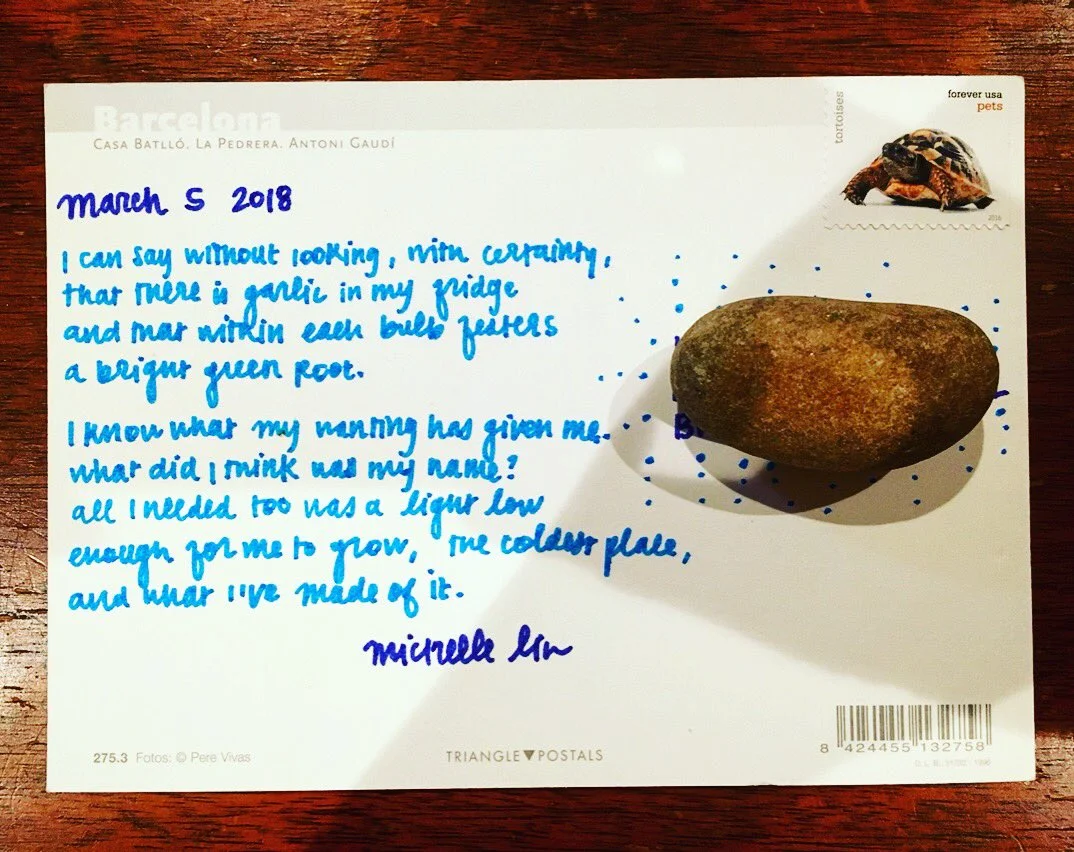 Barcelona
CASA BATLLÓ. LA PEDRERA. ANTONI GAUDÍ
tortoises
forever usa
pets
2016
march 5 2018
I can say without looking, with certainty,
that there is garlic in my fridge
and that within each bulb festers
a bright green root.
I know what my wanting has given me.
what did I think was my name?
all I needed too was a light low
enough for me to grow, the coldest place,
and what I've made of it.
michelle lin
275.3 Fotos: © Pere Vivas
TRIANGLE▼POSTALS
8 424455 132758